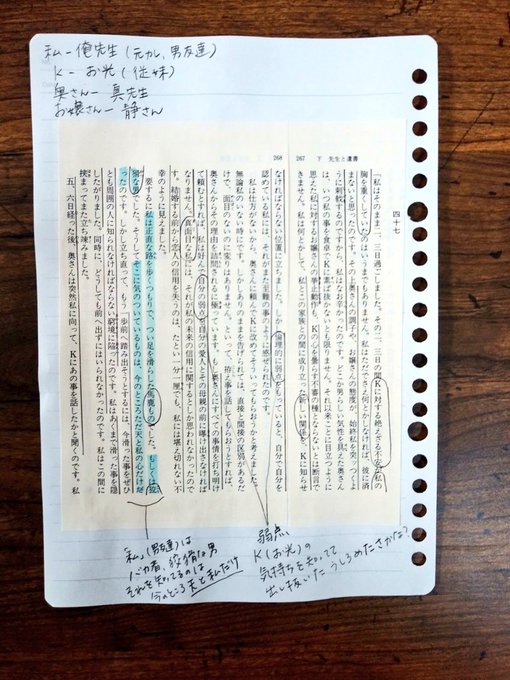 私－俺先生(元カレ、男友達)
K－お光(従妹)
奥さん－真先生
お嬢さん－静さん
267 下 先生と遺書
四十七
「私はそのまま二、三日過ごしました。その二、三日の間Kに対する絶えざる不安が私の
胸を重くしていたのはいうまでもありません。私はただでさえ何とかしなければ、彼に済
まないと思ったのです。その上奥さんの調子や、お嬢さんの態度が、始終私を突ッつくよ
うに刺戟するのですから、私はなお辛かったのです。どこか男らしい気性を具えた奥さん
は、いつ私の事を食卓でKに素ぱ抜かないとも限りません。それ以来ことに目立つように
思えた私に対するお嬢さんの挙止動作も、Kの心を曇らす不審の種とならないとは断言で
きません。私は何とかして、私とこの家族との間に成り立った新しい関係を、Kに知らせ
268
なければならない位置に立ちました。しかし倫理的に弱点をもっていると、自分で自分を
認めている私には、それがまた至難の事のように感ぜられたのです。
私は仕方がないから、奥さんに頼んでKに改めてそういってもらおうかと考えました。
無論私のいない時にです。しかしありのままを告げられては、直接と間接の区別があるだ
けで、面目のないのに変りはありません。といって、拵え事を話してもらおうとすれば、
奥さんからその理由を詰問されるに極っています。もし奥さんにすべての事情を打ち明け
て頼むとすれば、私は好んで自分の弱点を自分の愛人とその母親の前に曝け出さなければ
なりません。真面目な私には、それが私の未来の信用に関するとしか思われなかったので
す。結婚する前から恋人の信用を失うのは、たとい一分一厘でも、私には堪え切れない不
幸のように見えました。
要するに私は正直な路を歩くつもりで、つい足を滑らした馬鹿ものでした。もしくは狡
猾な男でした。そうしてそこに気のついているものは、今のところただ天と私の心だけだ
ったのです。しかし立ち直って、もう一歩前へ踏み出そうとするには、今滑った事をぜひ
とも周囲の人に知られなければならない窮境に陥ったのです。私はあくまで滑った事を隠
したがりました。同時に、どうしても前へ出ずにはいられなかったのです。私はこの間に
挟まってまた立ち竦みました。
五、六日経った後、奥さんは突然私に向って、Kにあの事を話したかと聞くのです。私
弱点
K(お光)の
気持ちを知ってて
出し抜いたうしろめたさかな?
私(男友達)は
バカ者、狡猾な男
それを知ってるのは
今のところ天と私だけ